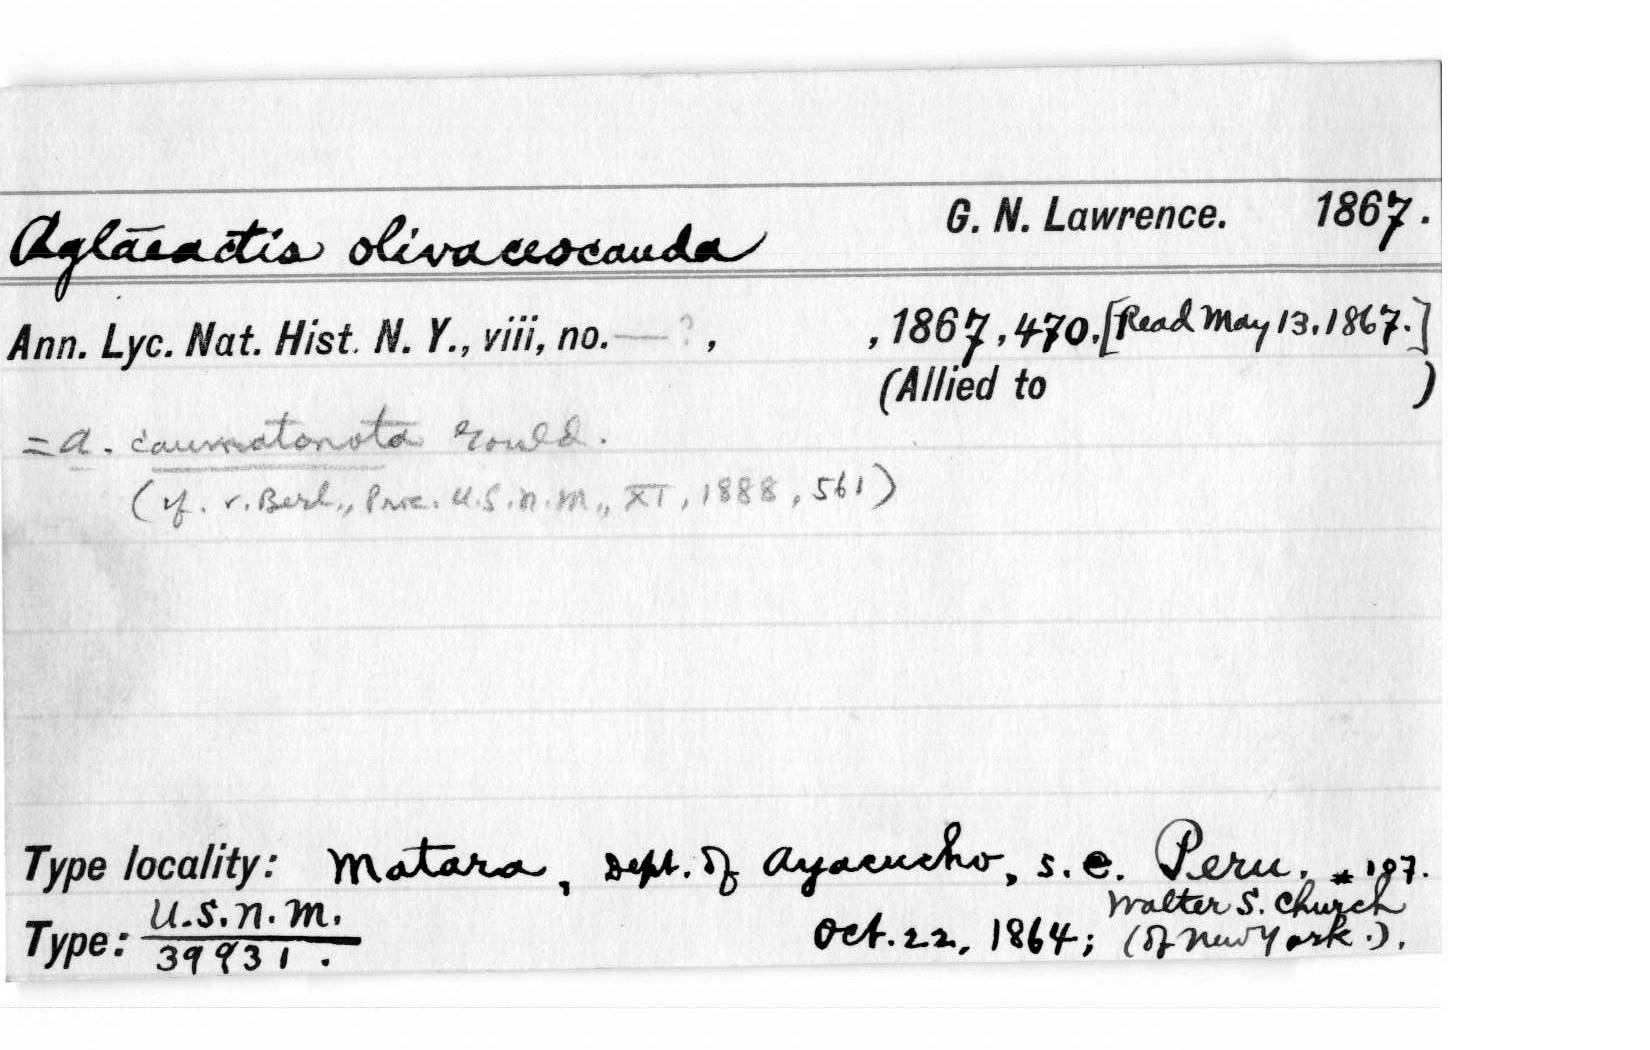 Aglāeactis olivaceocauda G. N. Lawrence. 1867.
Ann. Lyc. Nat. Hist. N. Y., viii, no. — ?, , 1867, 470. [Read May 13, 1867.]
(Allied to )
= A. caumatonota Gould.
(cf. v. Berl., Proc. U.S.N.M., XI, 1888, 561)
Type locality: Matara, Dept. of Ayacucho, s.e. Peru. * 187.
Type: U.S.N.M. 39931. Oct. 22, 1864; Walter S. Church
(of New York.).